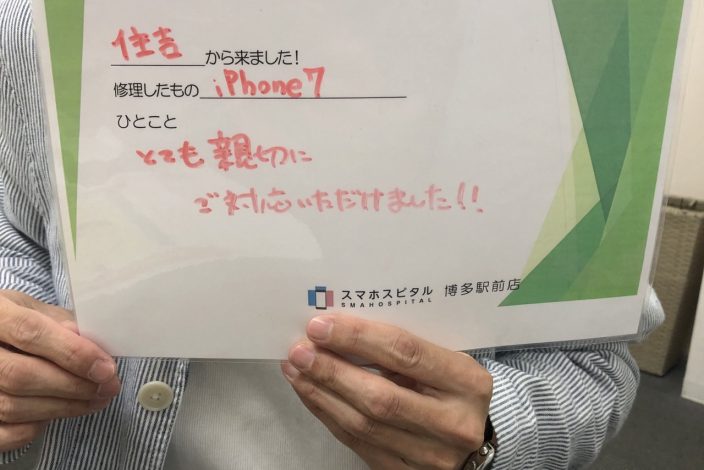 住吉から来ました!
修理したもの iPhone7
ひとこと
とても親切に
ご対応いただけました!!
スマホスピタル 博多駅前店
SMAHOSPITAL